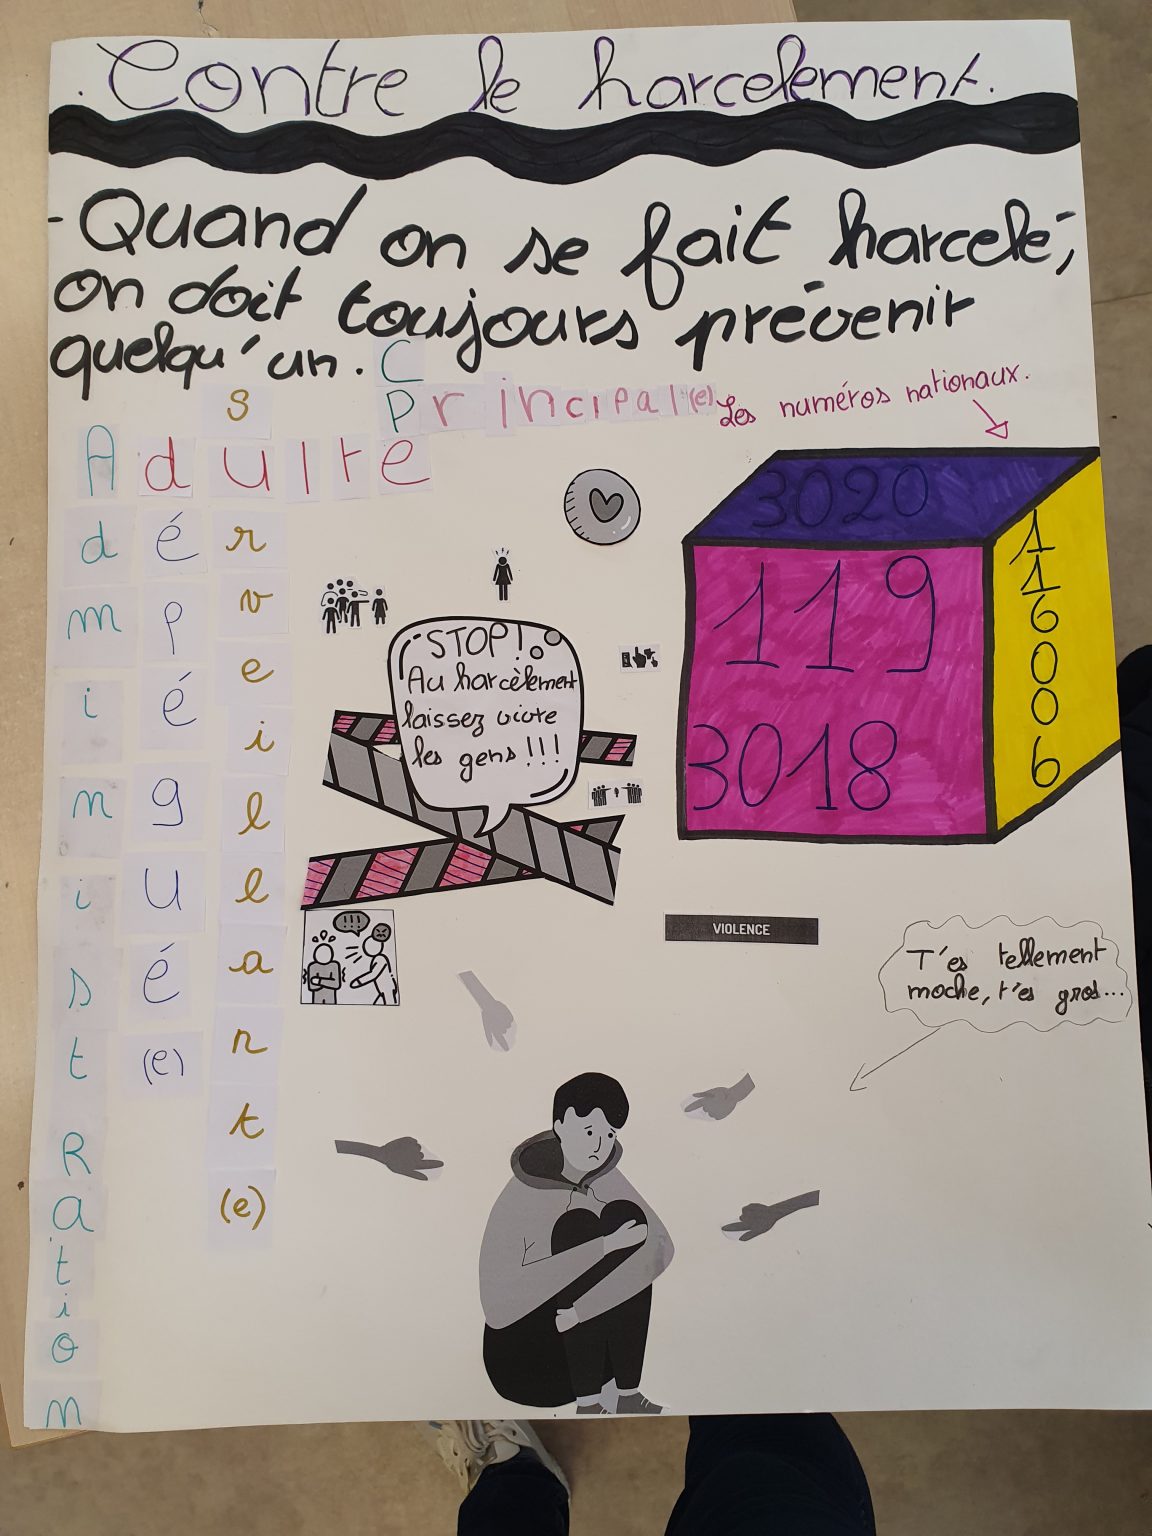 Contre le harcelement.
- Quand on se fait harcelé,
on doit toujours prévenir
quelqu'un.
CPE
Principal(e)
Adulte
Administration
dépéégué(e)
surveillant(e)
Les numéros nationaux.
3020
119
3018
116006
STOP!
Au harcèlement
laissez vivre
les gens !!!
!!!
VIOLENCE
T'es tellement
moche, t'es gros...